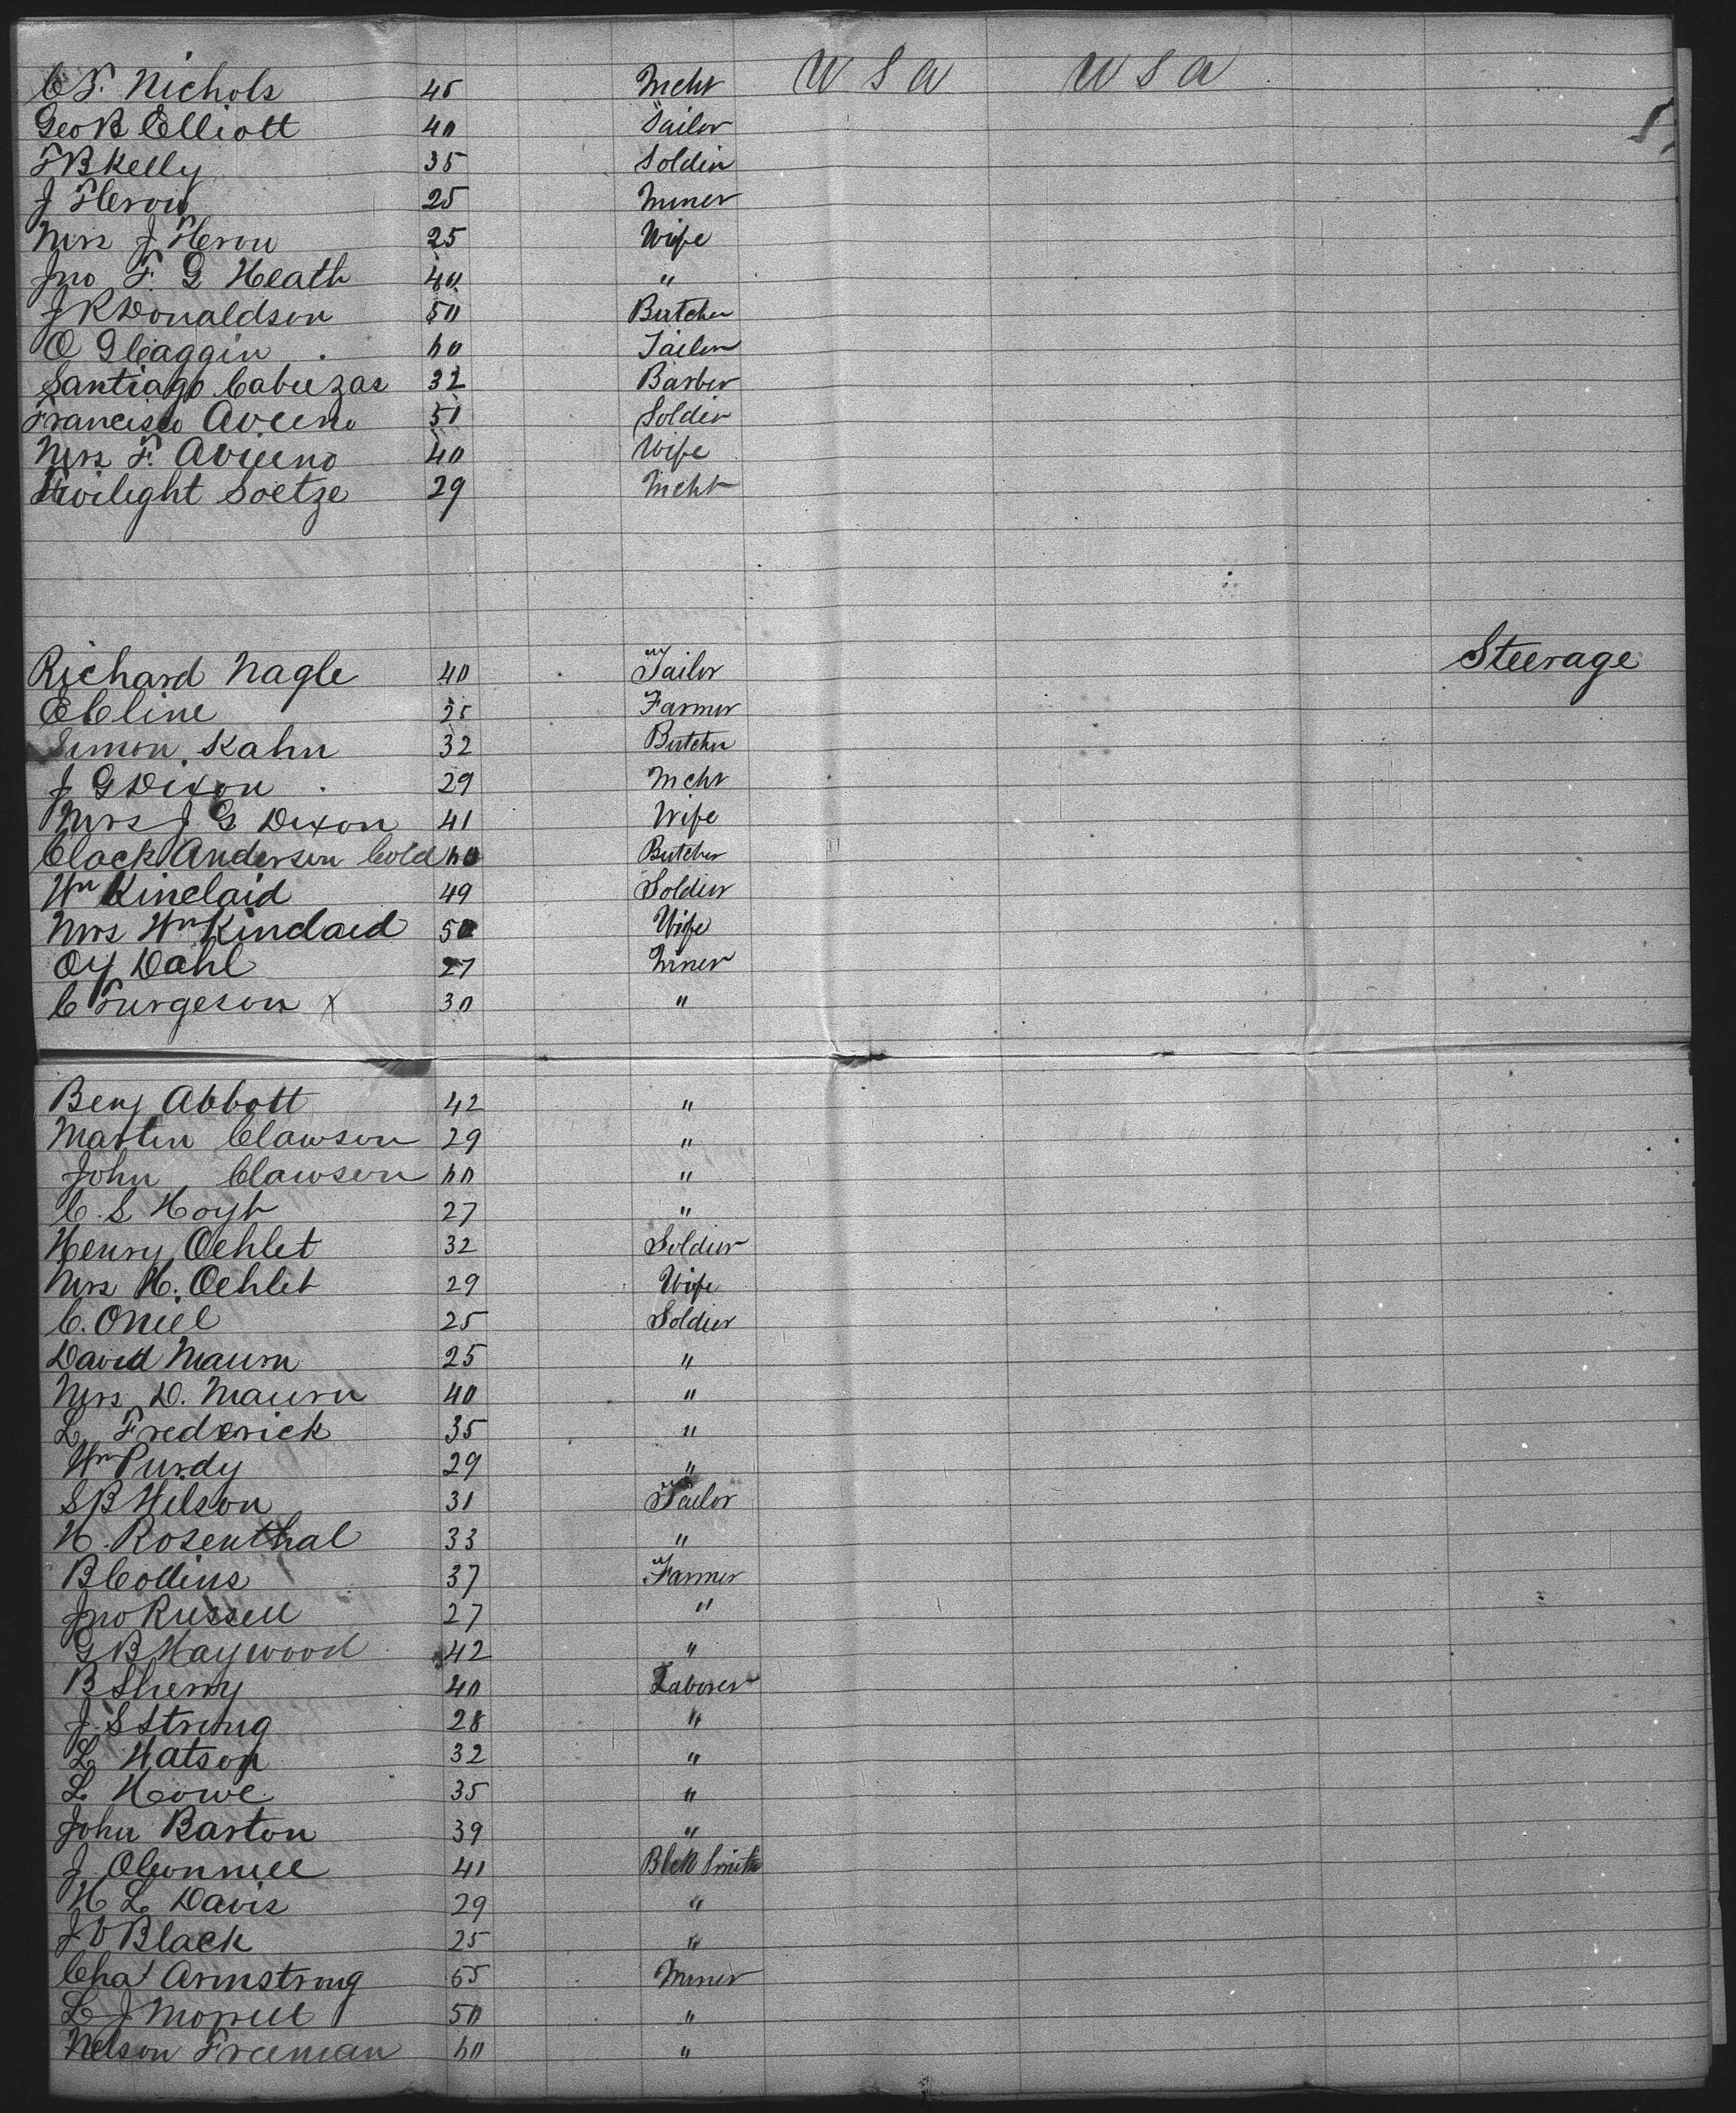 C F. Nichols 45 Mcht U S A U S A
Geo B Elliott 40 Tailor
F B Kelly 35 Soldier
J Heron 25 Miner
Mrs J Heron 25 Wife
Jno F. G Heath 40 "
J R Donaldson 50 Butcher
O G Caggin 60 Tailor
Santiago Cabuzas 32 Barber
Francisco 51 Soldier
Mrs F. 40 Wife
Twilight Soetze 29 Mcht
Richard Nagle 40 Tailor Steerage
E Cline 25 Farmer
Simon Kahn 32 Butcher
J G Dixon 29 Mcht
Mrs J G Dixon 41 Wife
Clack Anderson Cold 60 Butcher
Wm Kinclaid 49 Soldier
Mrs Wm Kinclaid 50 Wife
O Y Dahl 27 Miner
C Furgeson X 30 "
Benj Abbott 42 "
Martin Clawson 29 "
John Clawson 60 "
C. S Hoyt 27 "
Henry Oehlet 32 Soldier
Mrs H. Oehlet 29 Wife
C. Oniel 25 Soldier
David Maurn 25 "
Mrs D. Maurn 40 "
L Frederick 35 "
Wm Purdy 29 "
S B Wilson 31 Tailor
H. Rosenthal 33 "
B Collins 37 Farmer
Jno Russell 27 "
G B Haywood 42 "
B Sherry 40 Laborer
J. S Strong 28 "
L Watson 32 "
L Howe 35 "
John Barton 39 "
J. OConnell 41 Blck Smith
H L Davis 29 "
J V Black 25 "
Chas Armstrong 55 Miner
L J Morrell 50 "
Nelson Freeman 60 "